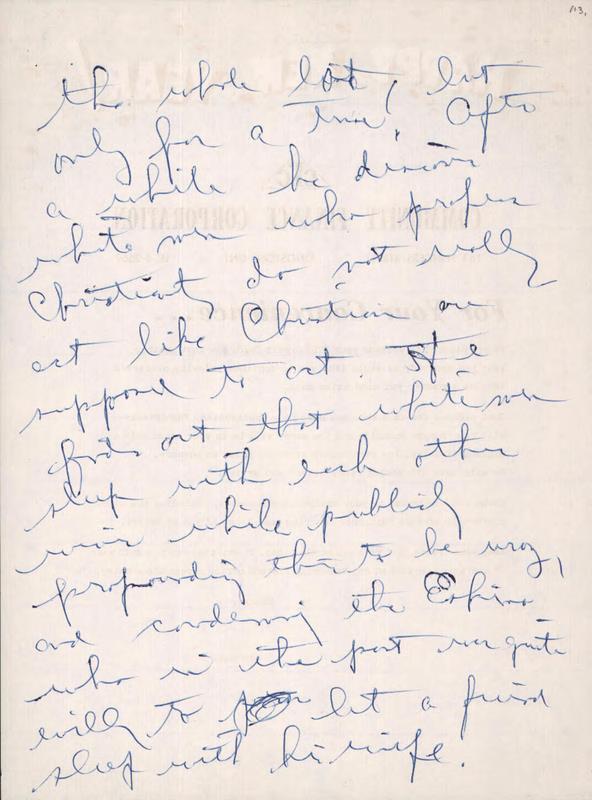 113.
the whole lot, but
only for a time. After
a while he discovers
white men who profess
Christianity do not really
act like Christians are
supposed to act. He
finds out that white men
sleep with each other
wives while publicly
propounding this to be wrong,
and condemning the Eskimo
who in the past was quite
willing to let a friend
sleep with his wife.
COMMUNITY FINANCE CORPORATION
For Your Convenience...